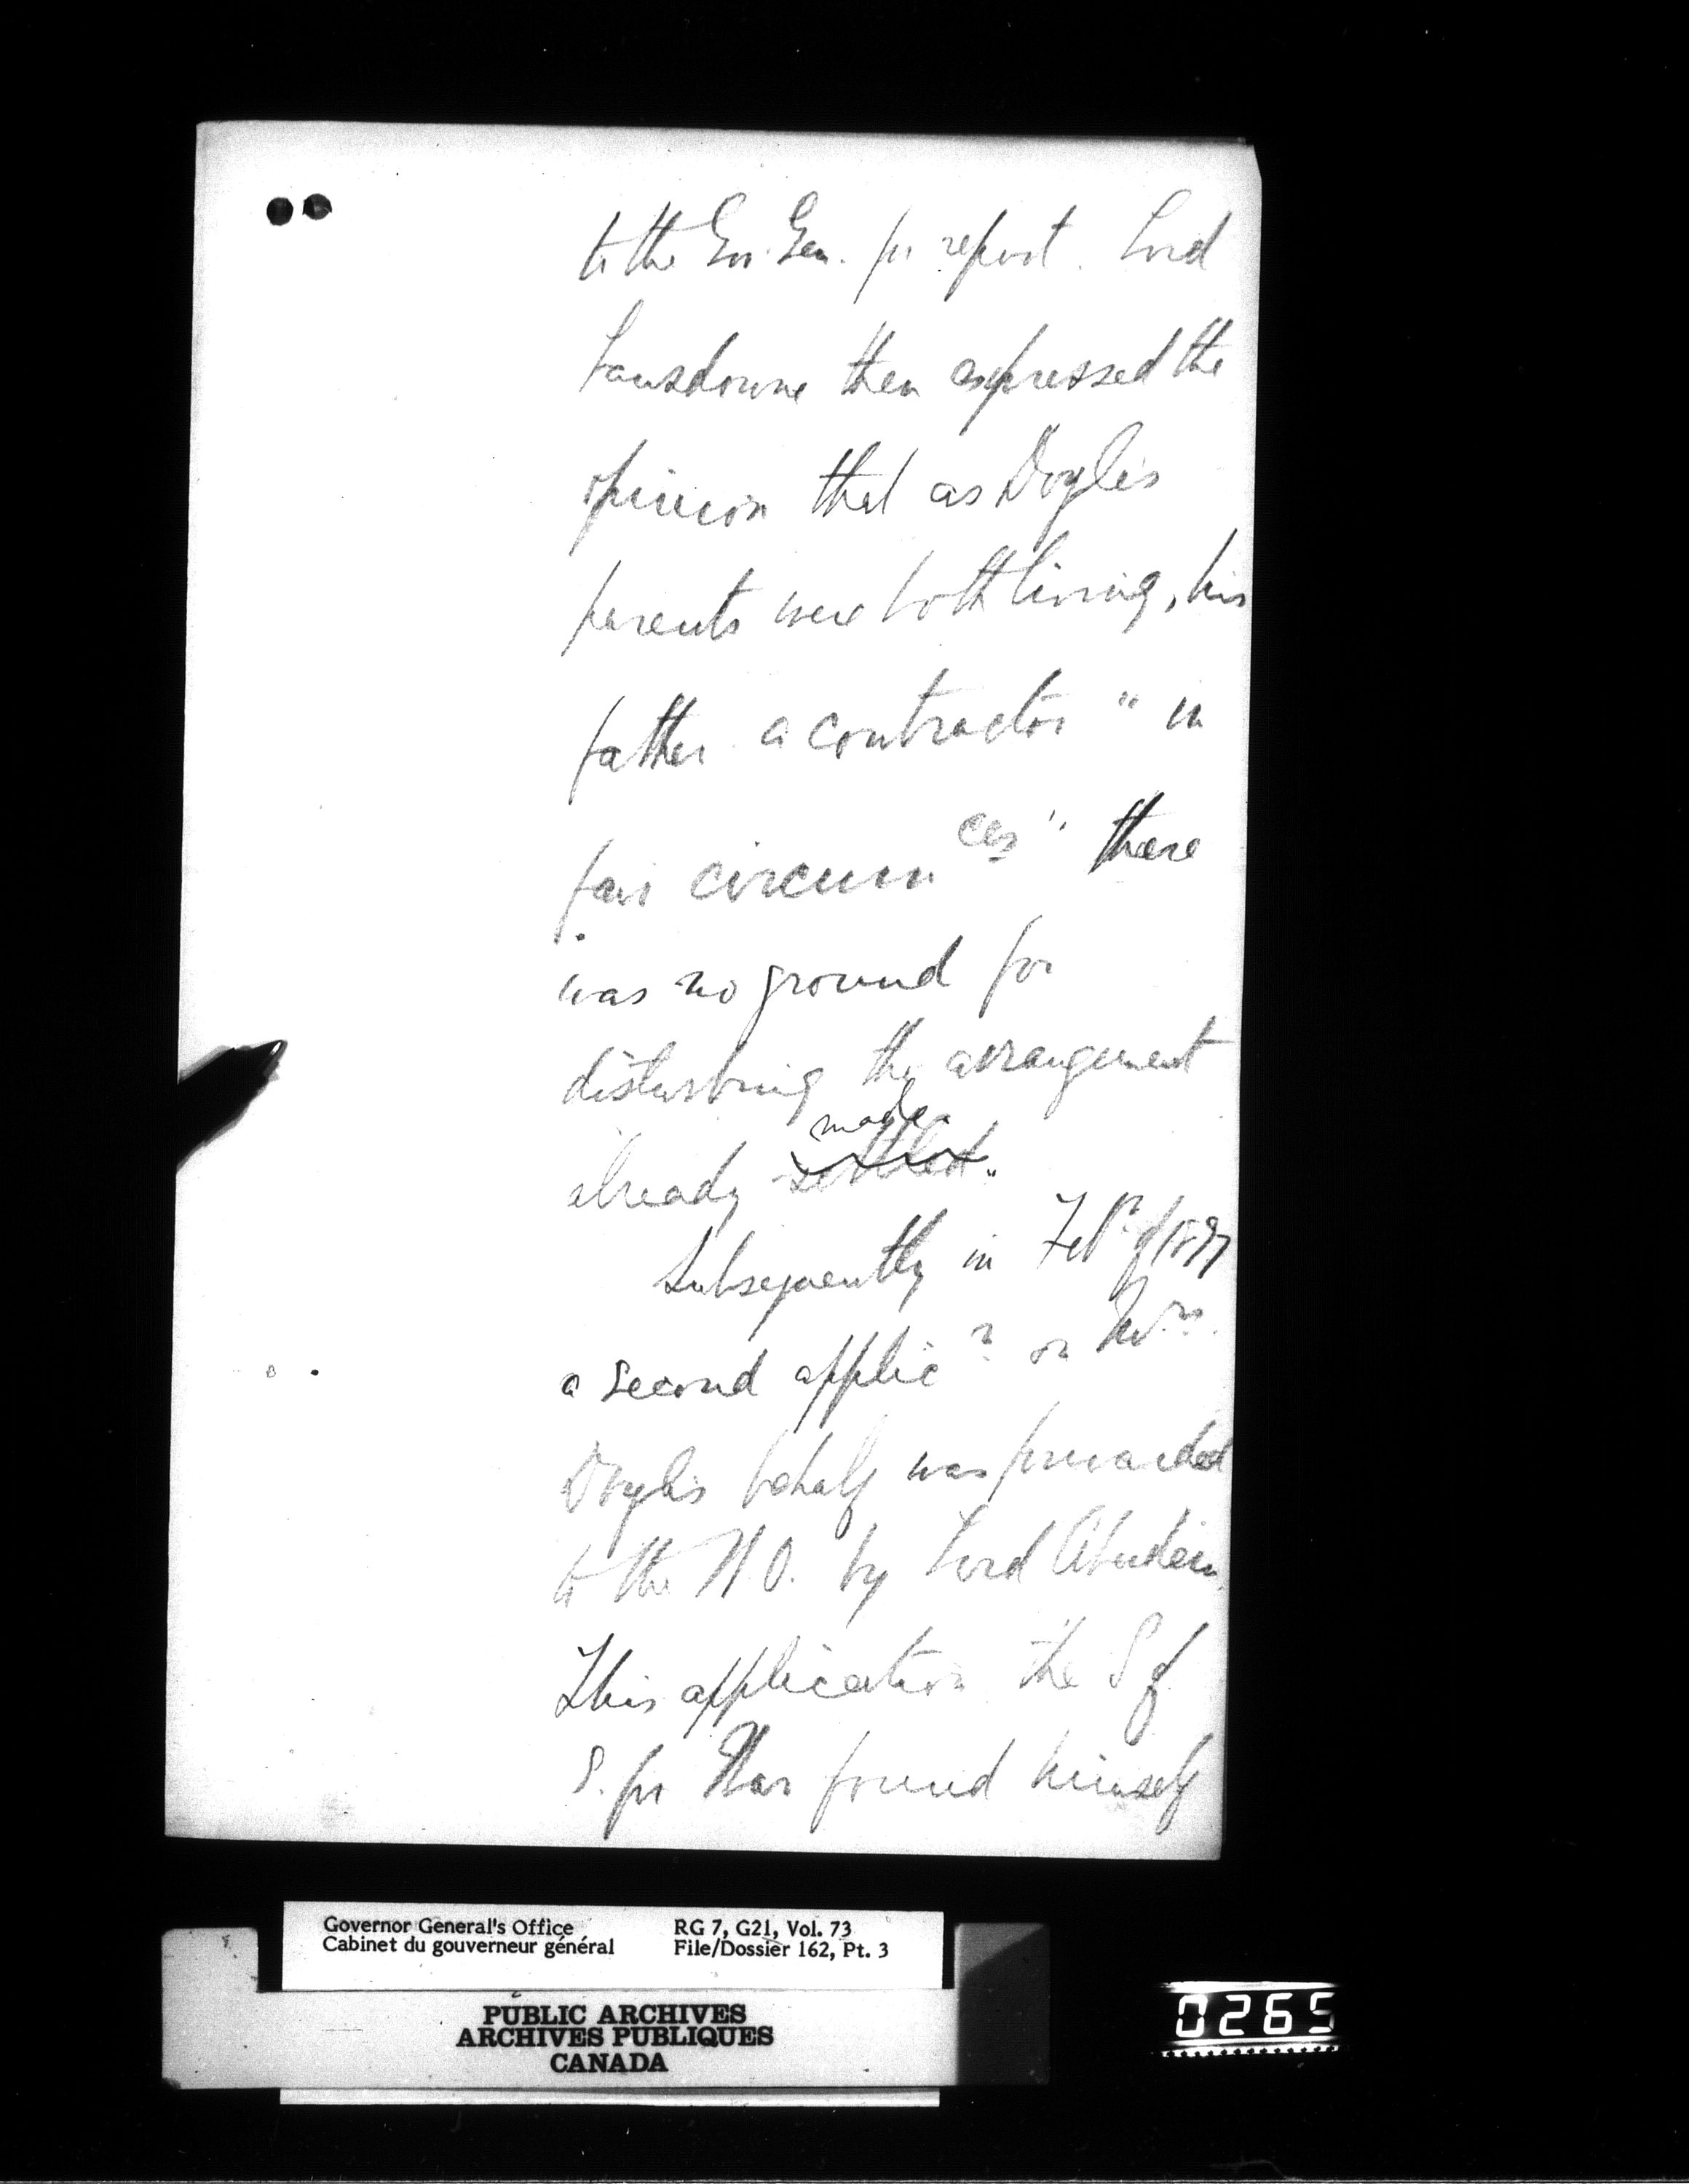 to the Gov. Gen. for report. Lord
Lansdowne then expressed the
opinion that as Doyle's
parents were both living, his
father a contractor "in
fair circumces" there
was no ground for
disturbing the arrangement
made
already settled."
Subsequently in Feby. of 1897
a second applicn on Mrs.
Doyle's behalf was forwarded
to the W.O. by Lord Aberdeen.
This application the S of
S. for War found himself
Governor General's Office
Cabinet du gouverneur général
RG 7, G21, Vol. 73
File/Dossier 162, Pt. 3
PUBLIC ARCHIVES
ARCHIVES PUBLIQUES
CANADA
0265